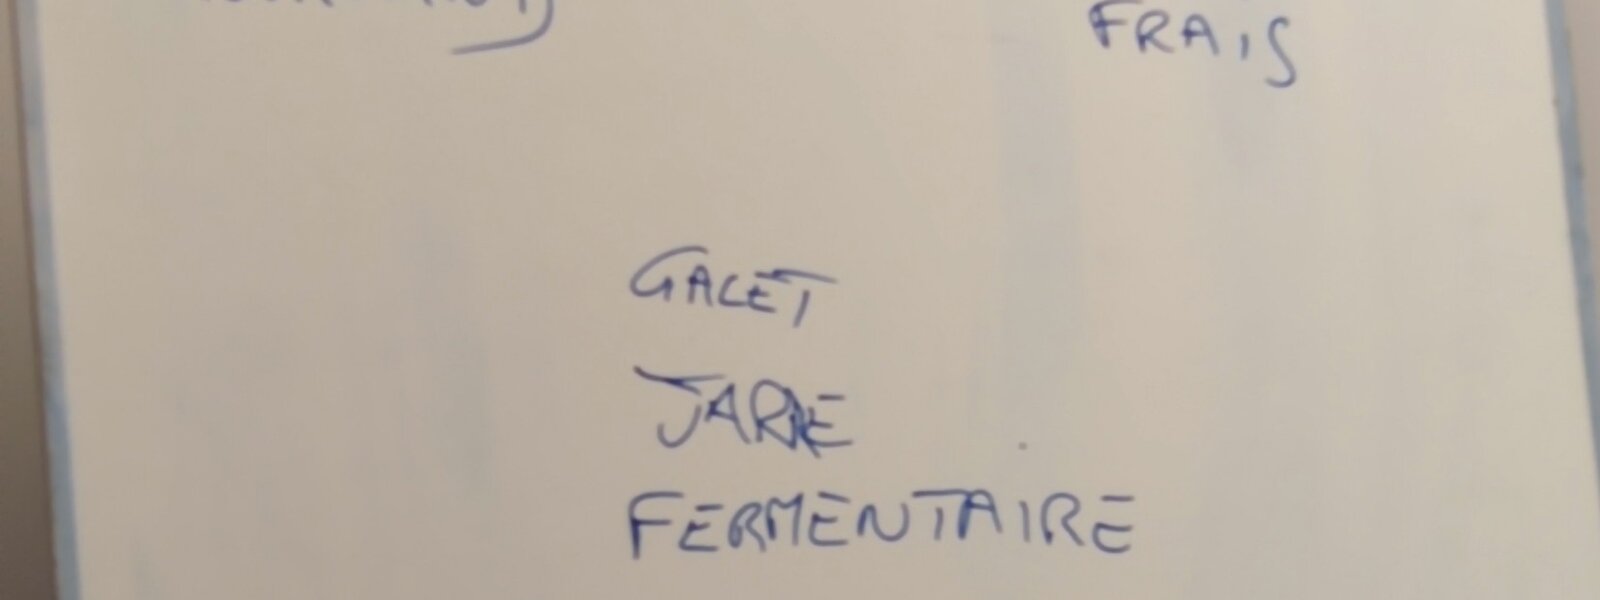 FRAIS
GALET
JARRE
FERMENTAIRE